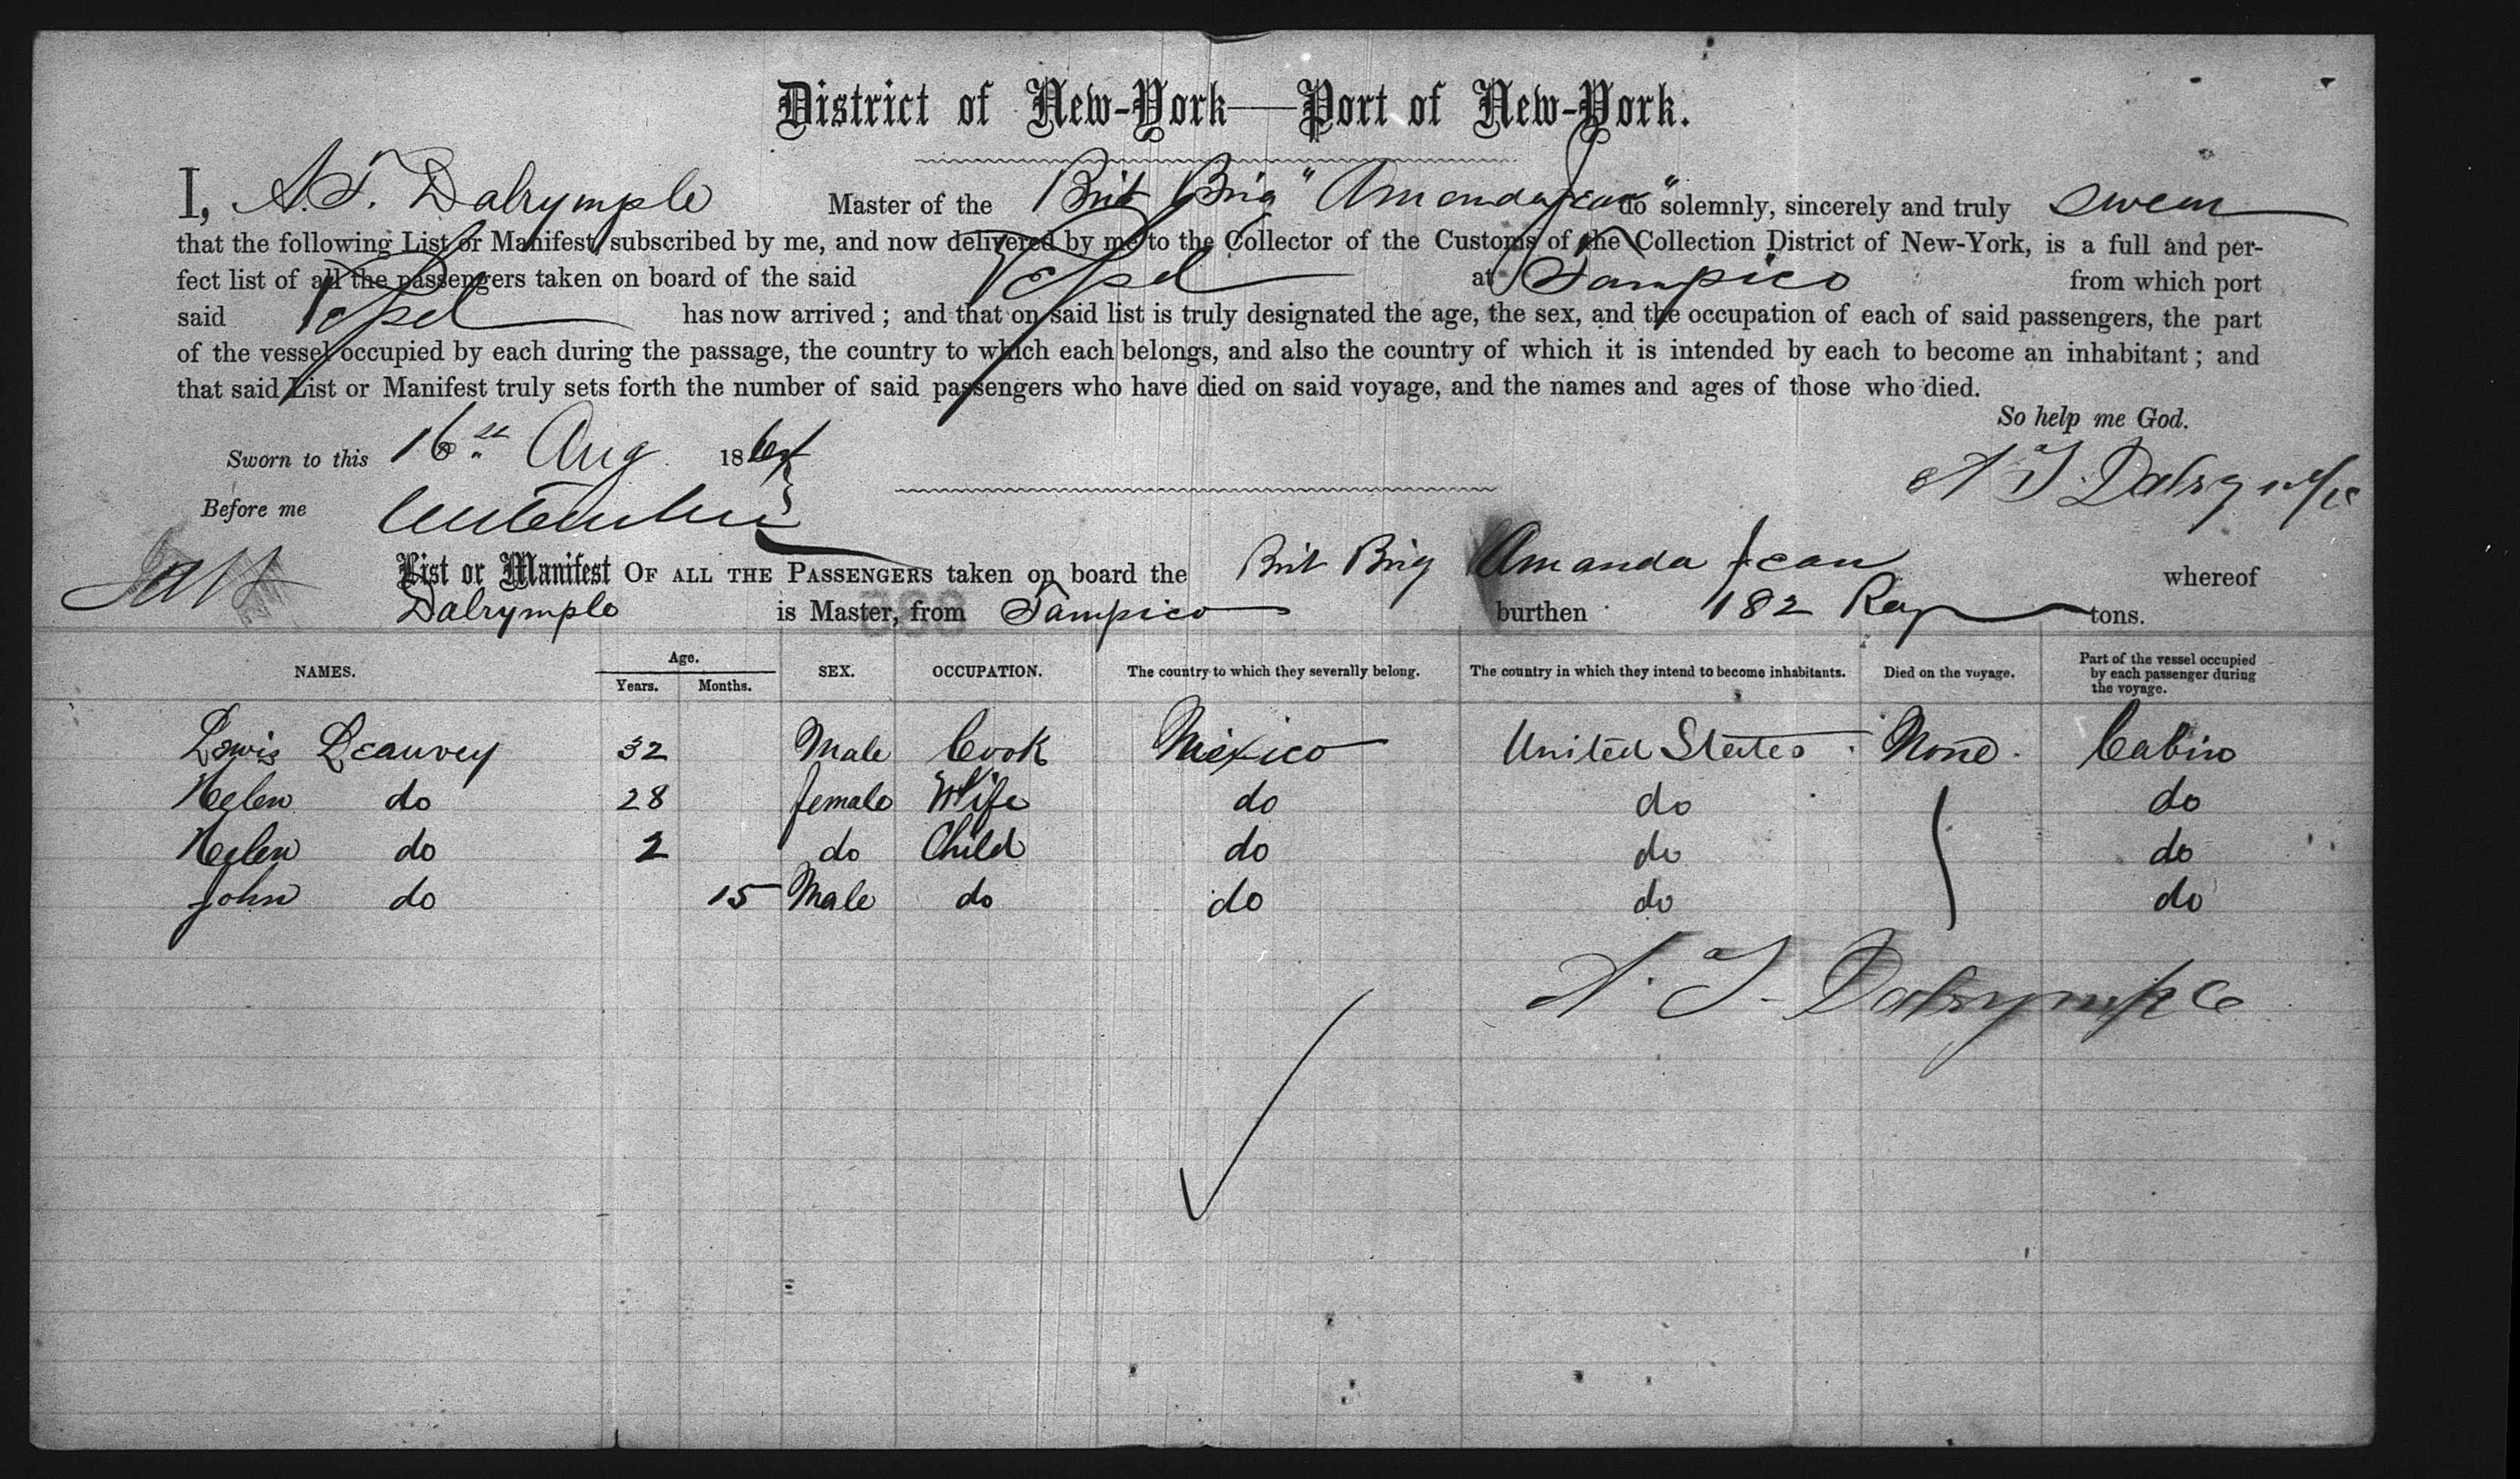 District of New-York—Port of New-York.
I, A. T. Dalrymple Master of the Brit Brig "Amanda Jean" do solemnly, sincerely and truly swear
that the following List or Manifest, subscribed by me, and now delivered by me to the Collector of the Customs of the Collection District of New-York, is a full and per-
fect list of all the passengers taken on board of the said Vessel at Tampico from which port
said Vessel has now arrived ; and that on said list is truly designated the age, the sex, and the occupation of each of said passengers, the part
of the vessel occupied by each during the passage, the country to which each belongs, and also the country of which it is intended by each to become an inhabitant ; and
that said List or Manifest truly sets forth the number of said passengers who have died on said voyage, and the names and ages of those who died.
So help me God.
Sworn to this 16 Aug 1864
A T Dalrymple
Before me
List or Manifest OF ALL THE PASSENGERS taken on board the Brit Brig Amanda Jean whereof
Dalrymple is Master, from Tampico burthen 182 tons.
NAMES. Age. Years. Months. SEX. OCCUPATION. The country to which they severally belong. The country in which they intend to become inhabitants. Died on the voyage. Part of the vessel occupied by each passenger during the voyage.
Lewis Leauvey 32 Male Cook Mexico United States None. Cabin
Helen do 28 female Wife do do do
Helen do 2 do Child do do do
John do 15 Male do do do do
A. T. Dalrymple